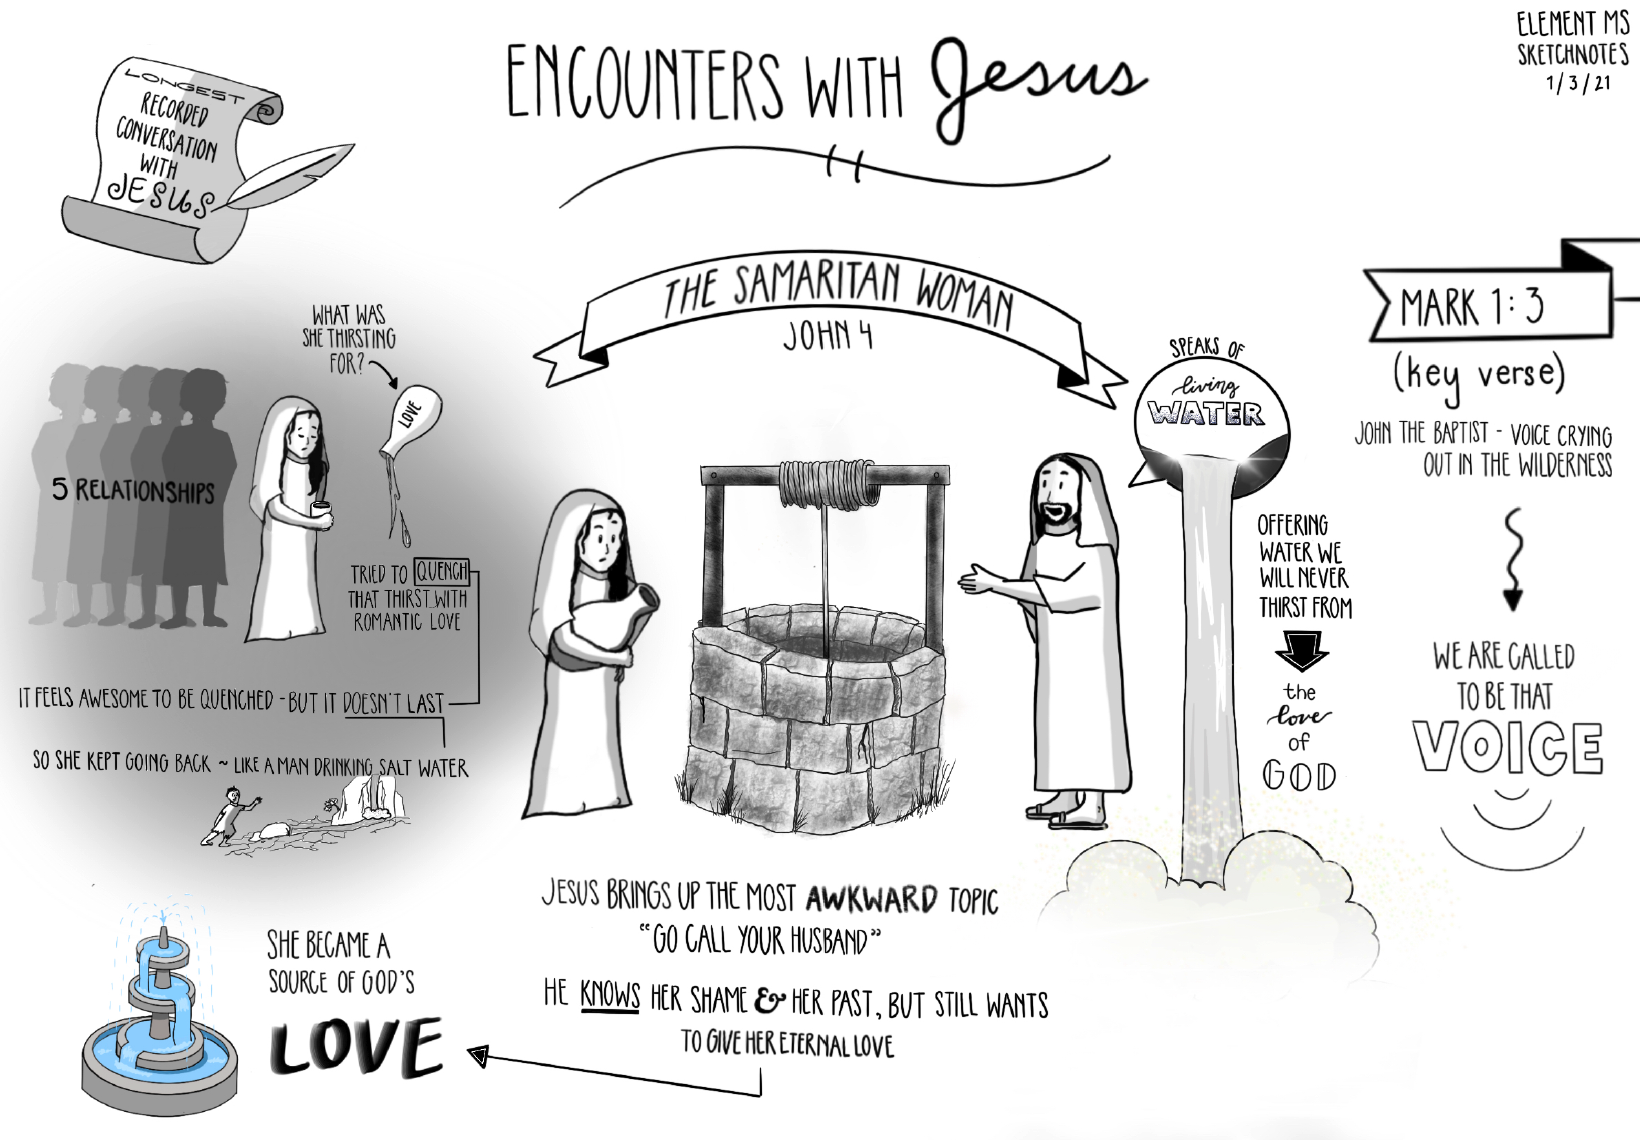 ELEMENT MS
SKETCHNOTES
1/3/21
ENCOUNTERS WITH Jesus
LONGEST
RECORDED
CONVERSATION
WITH
JESUS
THE SAMARITAN WOMAN
JOHN 4
WHAT WAS
SHE THIRSTING
FOR?
LOVE
5 RELATIONSHIPS
TRIED TO QUENCH
THAT THIRST WITH
ROMANTIC LOVE
IT FEELS AWESOME TO BE QUENCHED - BUT IT DOESN'T LAST
SO SHE KEPT GOING BACK ~ LIKE A MAN DRINKING SALT WATER
SPEAKS OF
living
WATER
OFFERING
WATER WE
WILL NEVER
THIRST FROM
the
love
of
GOD
MARK 1:3
(key verse)
JOHN THE BAPTIST - VOICE CRYING
OUT IN THE WILDERNESS
WE ARE CALLED
TO BE THAT
VOICE
JESUS BRINGS UP THE MOST AWKWARD TOPIC
"GO CALL YOUR HUSBAND"
HE KNOWS HER SHAME & HER PAST, BUT STILL WANTS
TO GIVE HER ETERNAL LOVE
SHE BECAME A
SOURCE OF GOD'S
LOVE